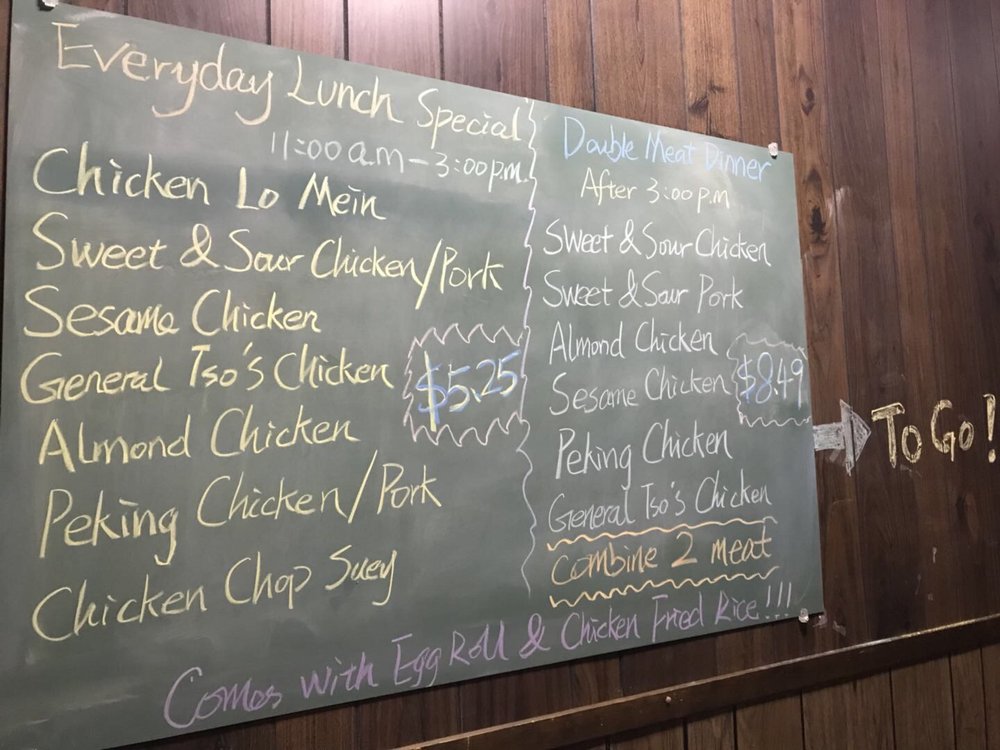 Everyday Lunch Special
11:00 a.m - 3:00 p.m.
Chicken Lo Mein
Sweet & Sour Chicken/Pork
Sesame Chicken
General Tso's Chicken
$5.25
Almond Chicken
Peking Chicken/Pork
Chicken Chop Suey
Double Meat Dinner
After 3:00 p.m
Sweet & Sour Chicken
Sweet & Sour Pork
Almond Chicken
Sesame Chicken
$8.49
Peking Chicken
General Tso's Chicken
Combine 2 meat
Comes with Egg Roll & Chicken Fried Rice!!!
To Go!